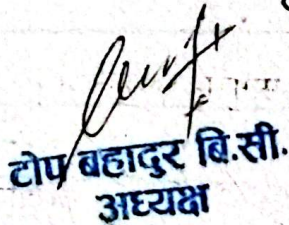 टोप बहादुर बि.सी.
अध्यक्ष